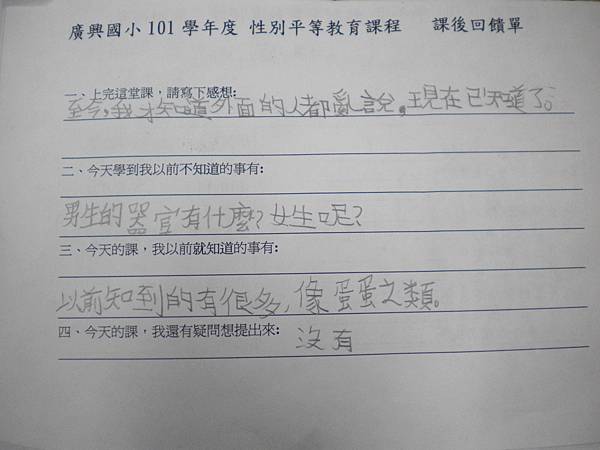 廣興國小 101 學年度 性別平等教育課程 課後回饋單
一、上完這堂課，請寫下感想:
至今，我才知道外面的人都亂說，現在已知道了。
二、今天學到我以前不知道的事有:
男生的器官有什麼？女生呢？
三、今天的課，我以前就知道的事有:
以前知到的有很多，像蛋蛋之類。
四、今天的課，我還有疑問想提出來: 沒有